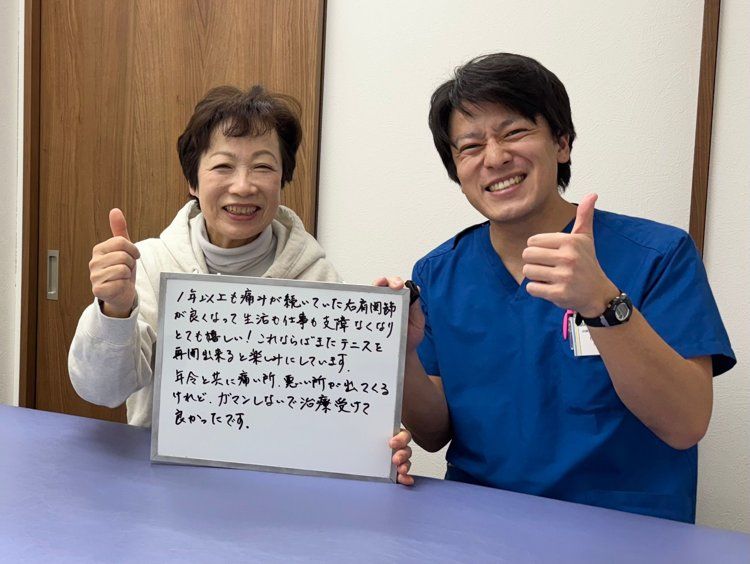 1年以上も痛みが続いていた右肩関節
が良くなって生活も仕事も支障なくなり
とても嬉しい！これならばまたテニスを
再開出来ると楽しみにしています。
年令と共に痛い所、悪い所が出てくる
けれど、ガマンしないで治療受けて
良かったです。